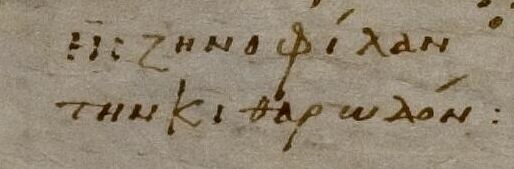 Εἰς ζηνοφίλαν
τὴν κιθαρωδόν: